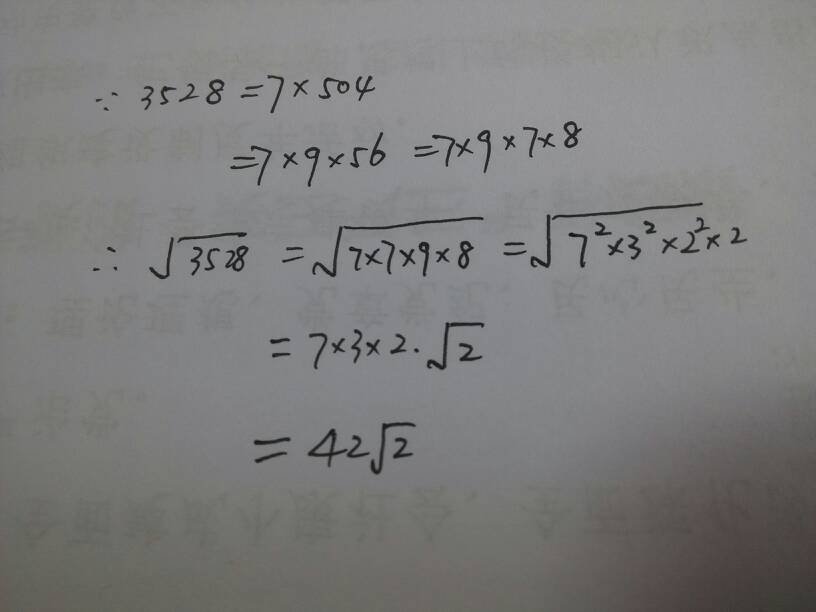 ∵ 3528 = 7 × 504
= 7 × 9 × 56 = 7 × 9 × 7 × 8
∴ √3528 = √(7×7×9×8) = √(7²×3²×2²×2)
= 7×3×2·√2
= 42√2